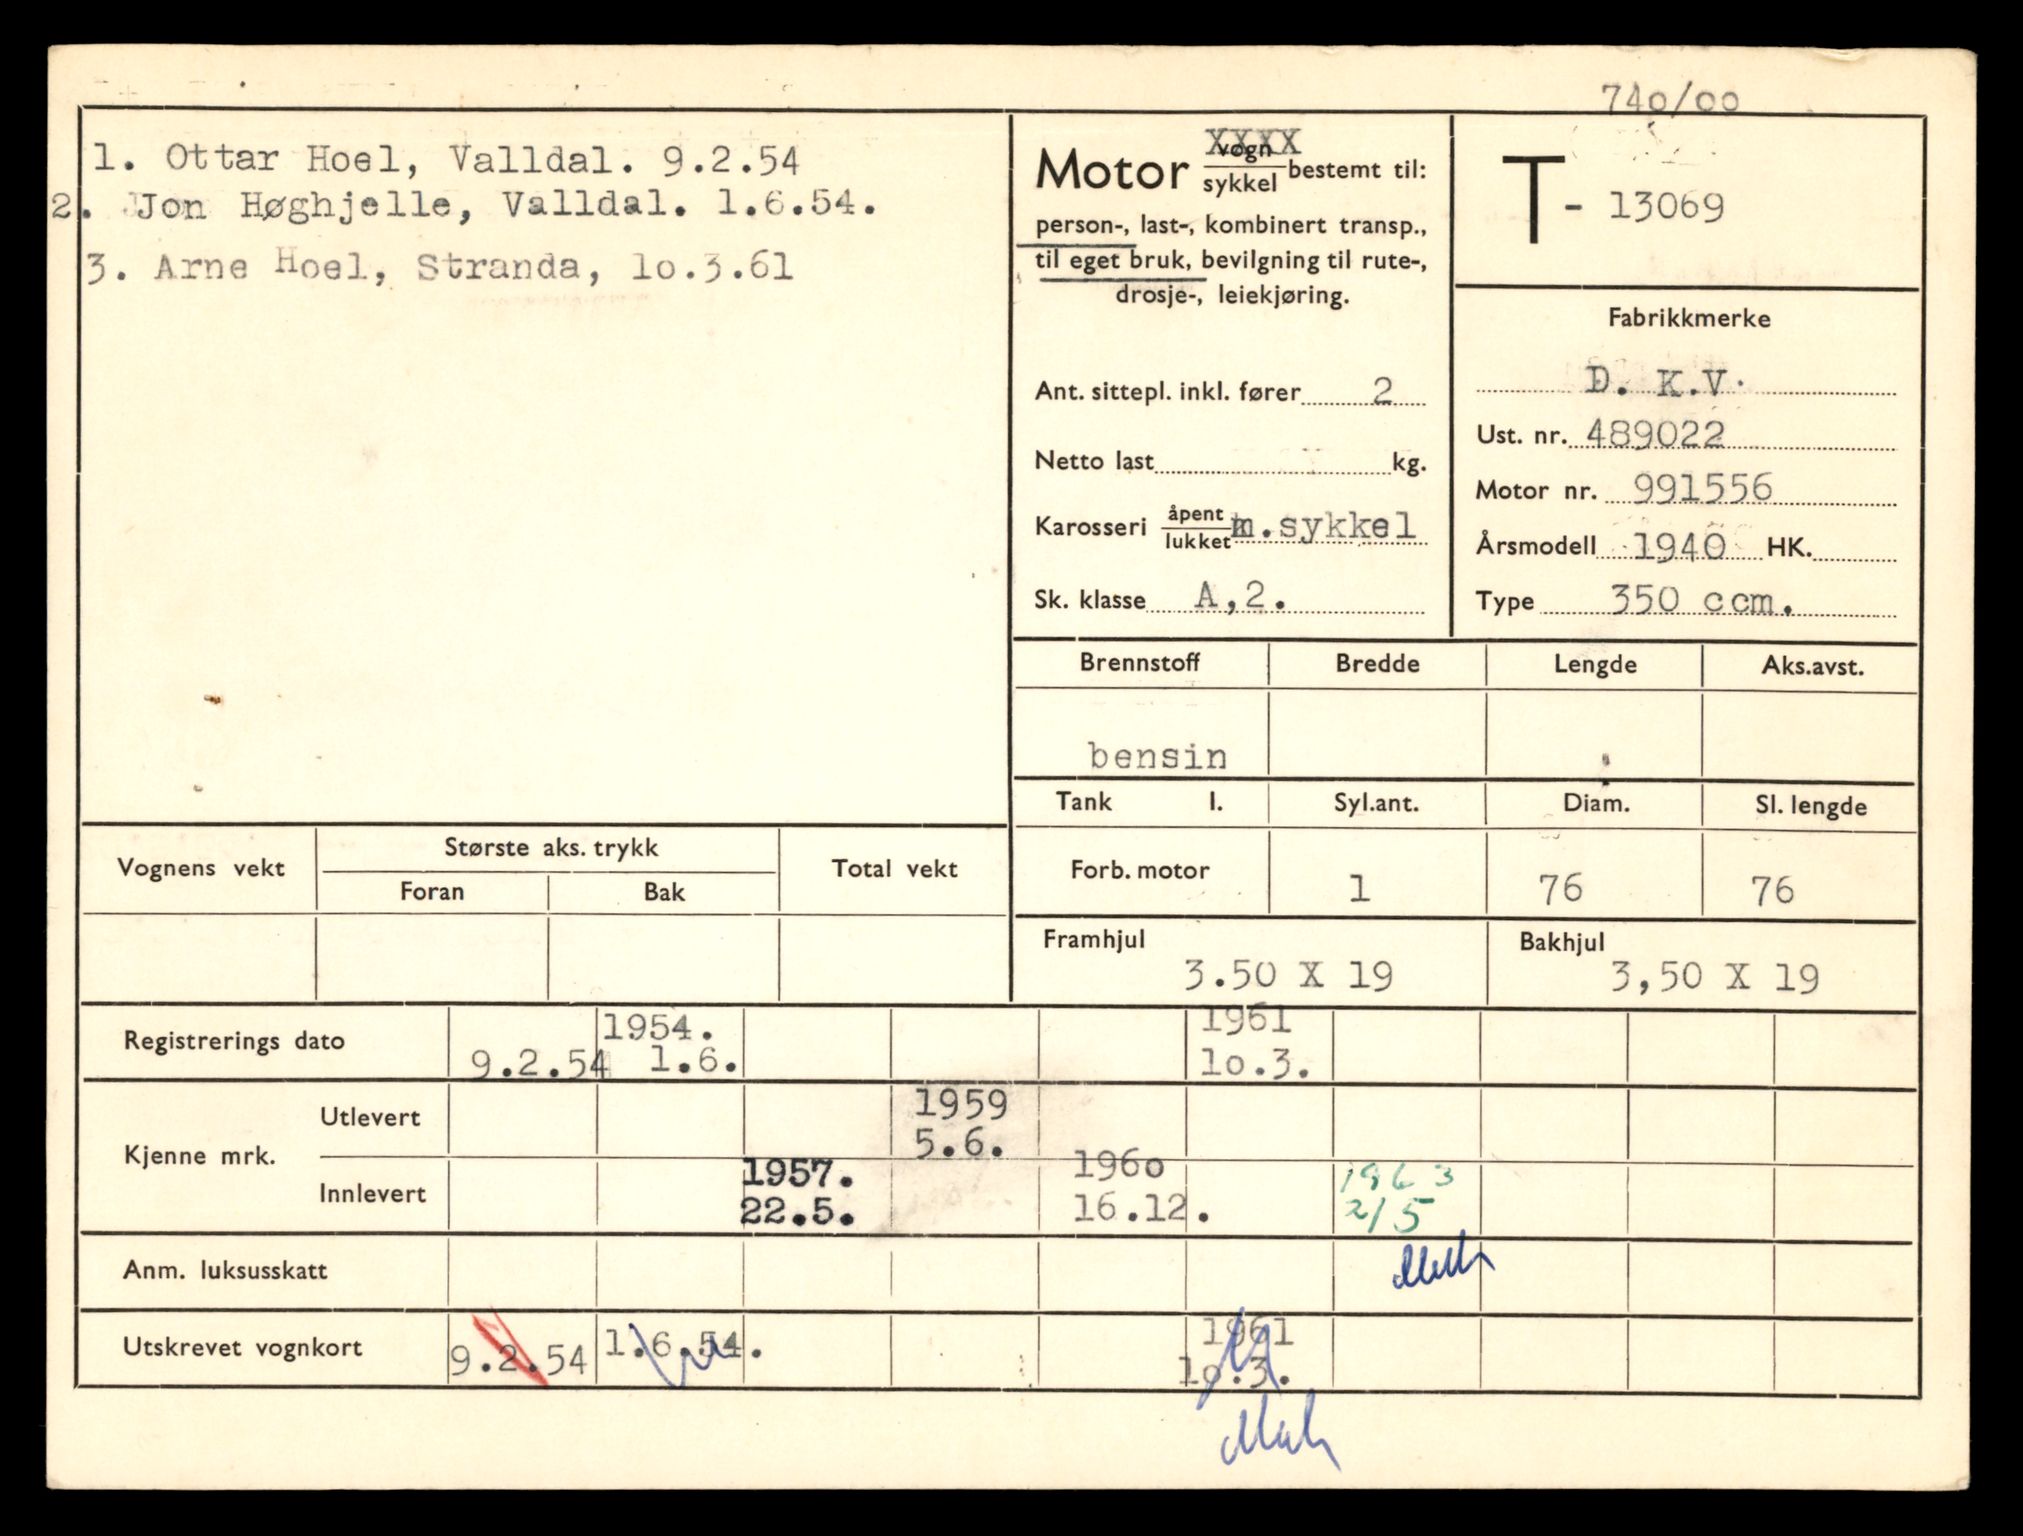 740/00
1. Ottar Hoel, Valldal. 9.2.54
2. Jon Høghjelle, Valldal. 1.6.54.
3. Arne Hoel, Stranda, 10.3.61
Motor vogn XXXX
sykkel bestemt til:
person-, last-, kombinert transp.,
til eget bruk, bevilgning til rute-,
drosje-, leiekjøring.
Ant. sittepl. inkl. fører 2
Netto last kg.
Karosseri åpent
lukket m.sykkel
Sk. klasse A,2.
T - 13069
Fabrikkmerke
D. K.V.
Ust. nr. 489022
Motor nr. 991556
Årsmodell 1940 HK.
Type 350 ccm.
Brennstoff Bredde Lengde Aks.avst.
bensin
Tank l. Syl.ant. Diam. Sl. lengde
Forb. motor 1 76 76
Framhjul Bakhjul
3.50 X 19 3,50 X 19
Vognens vekt Største aks. trykk Total vekt
Foran Bak
Registrerings dato 9.2.54 1954. 1961
1.6. 10.3.
Kjenne mrk.
Utlevert 1959
5.6.
Innlevert 1957. 1960 1963
22.5. 16.12. 2/5
Anm. luksusskatt
Utskrevet vognkort 9.2.54 1.6.54. 1961
10.3.